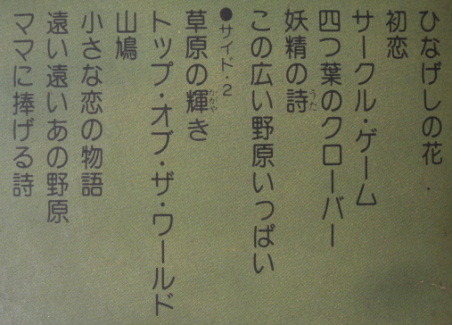 ひなげしの花
初恋
サークル・ゲーム
四つ葉のクローバー
妖精の詩
うた
この広い野原いっぱい
●サイド・2
草原の輝き
かがや
トップ・オブ・ザ・ワールド
山鳩
小さな恋の物語
遠い遠いあの野原
ママに捧げる詩